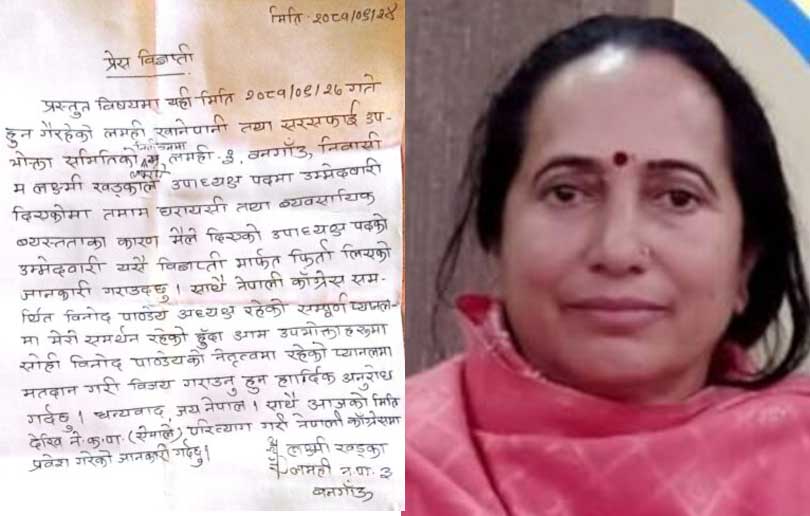 मिति - २०८१/०९/२४
प्रेस विज्ञप्ती
प्रस्तुत विषयमा यही मिति २०८१/०९/२६ गते
हुन गैरहेको लमही खानेपानी तथा सरसफाई उप-
भोक्ता समितिको निर्वाचनमा लमही-३, बनगाँउ, निवासी
म लक्ष्मी खड्काले उपाध्यक्ष पदमा उम्मेदवारी
दिएकोमा तमाम घरायसी तथा ब्यवसायिक
ब्यस्तताका कारण मैले दिएको उपाध्यक्ष पदको
उम्मेदवारी यसै विज्ञप्ती मार्फत फिर्ता लिएको
जानकारी गराउदछु । साथै नेपाली काँग्रेस सम-
र्थित विनोद पाण्डेय अध्यक्ष रहेको सम्पूर्ण प्यानल-
मा मेरो समर्थन रहेको हुँदा आम उपभोक्ता हरुमा
सोही विनोद पाण्डेयको नेतृत्वमा रहेको प्यानलमा
मतदान गरी विजय गराउनु हुन हार्दिक अनुरोध
गर्दछु । धन्यवाद, जय नेपाल । साथै आजको मिति
देखि ने.क.पा. (एमाले) परित्याग गरी नेपाली काँग्रेसमा
प्रवेश गरेको जानकारी गर्दछु।
लक्ष्मी खड्का
लमही न.पा. ३
बनगाँउ